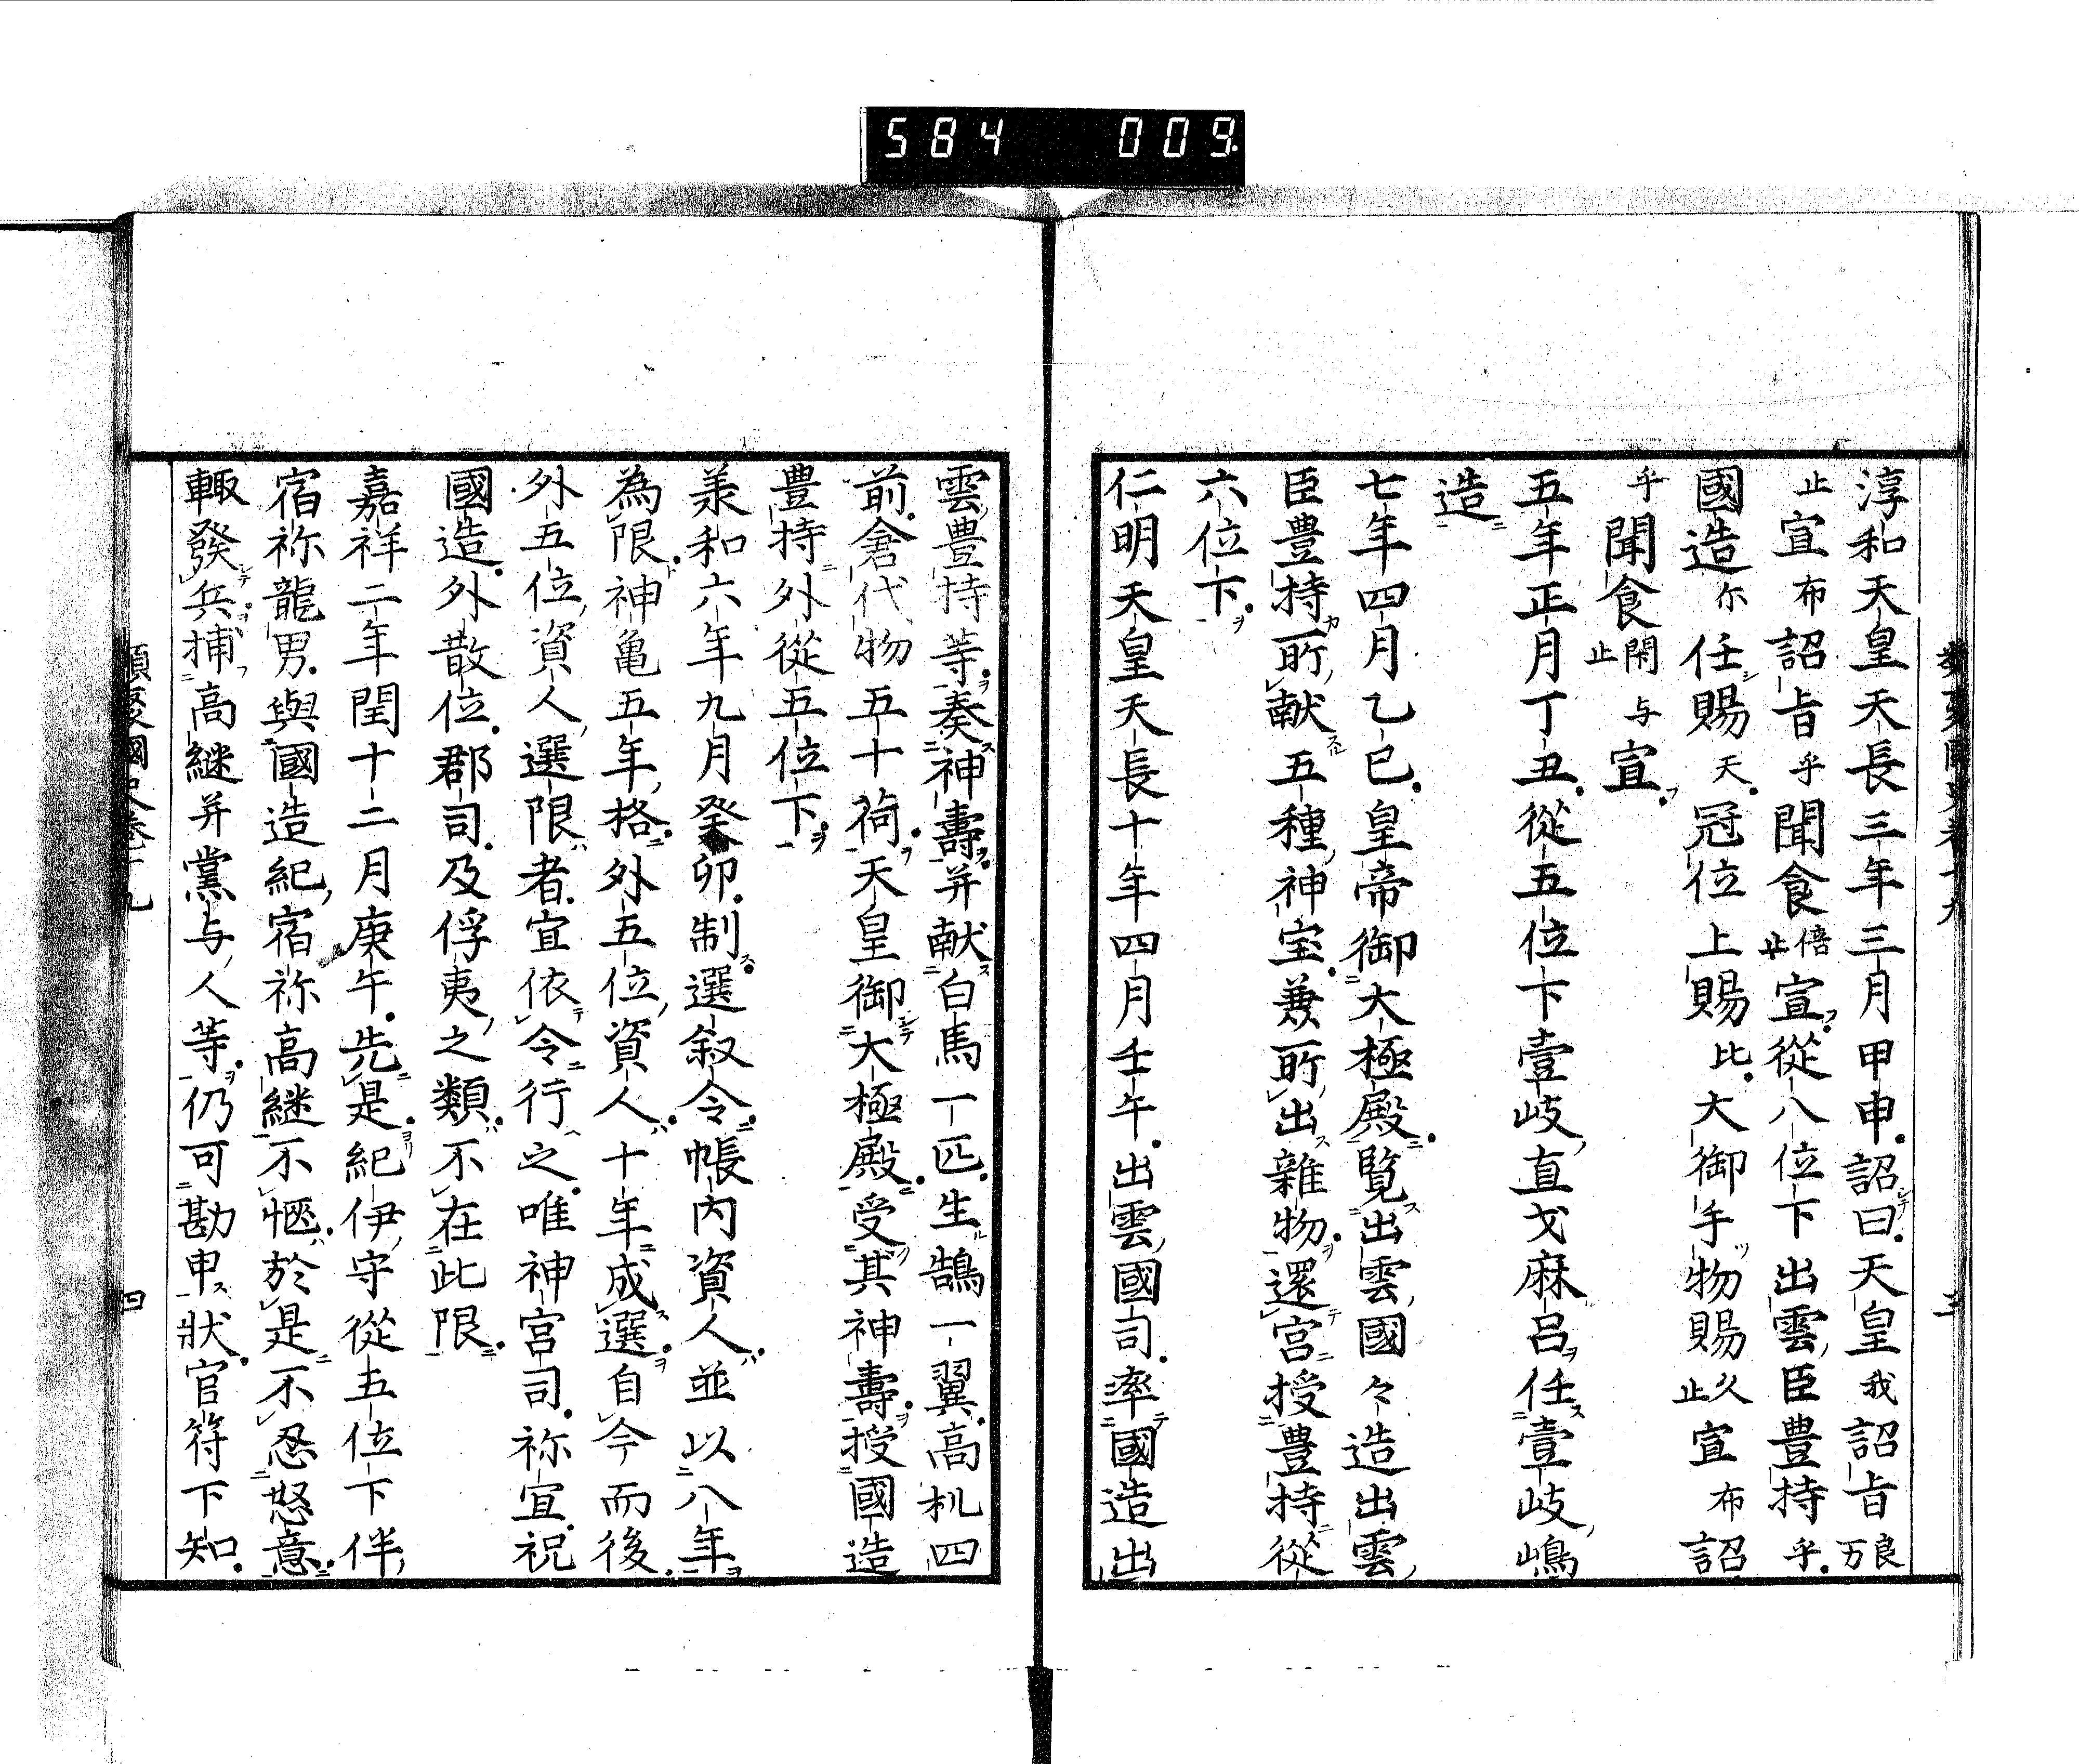 584 009
淳和天皇天長三年三月甲申詔曰天皇我詔旨良万
止宣布詔旨乎聞食倍止宣從八位下出雲臣豊持乎
國造尓任賜天冠位上賜比大御手物賜久止宣布詔
乎聞食閇止与宣
五年正月丁丑從五位下壹岐直戈麻呂任壹岐嶋
造
七年四月乙巳皇帝御大極殿覧出雲國々造出雲
臣豊持所献五種神宝兼所出雜物還宮授豊持從
六位下
仁明天皇天長十年四月壬午出雲國司率國造出
雲豊持等奏神壽并献白馬一匹生鵠一翼高机四
前倉代物五十荷天皇御大極殿受其神壽授國造
豊持外從五位下
羕和六年九月癸卯制選叙令帳内資人並以八年
為限神亀五年格外五位資人十年成選自今而後
外五位資人選限者宜依令行之唯神宮司祢宜祝
國造外散位郡司及俘夷之類不在此限
嘉祥二年閏十二月庚午先是紀伊守從五位下伴
宿祢龍男與國造紀宿祢高継不愜於是不忍怒意
輙發兵捕高継并黨与人等仍可勘申狀官符下知
類聚國史巻十九
三
類聚國史巻十九
四